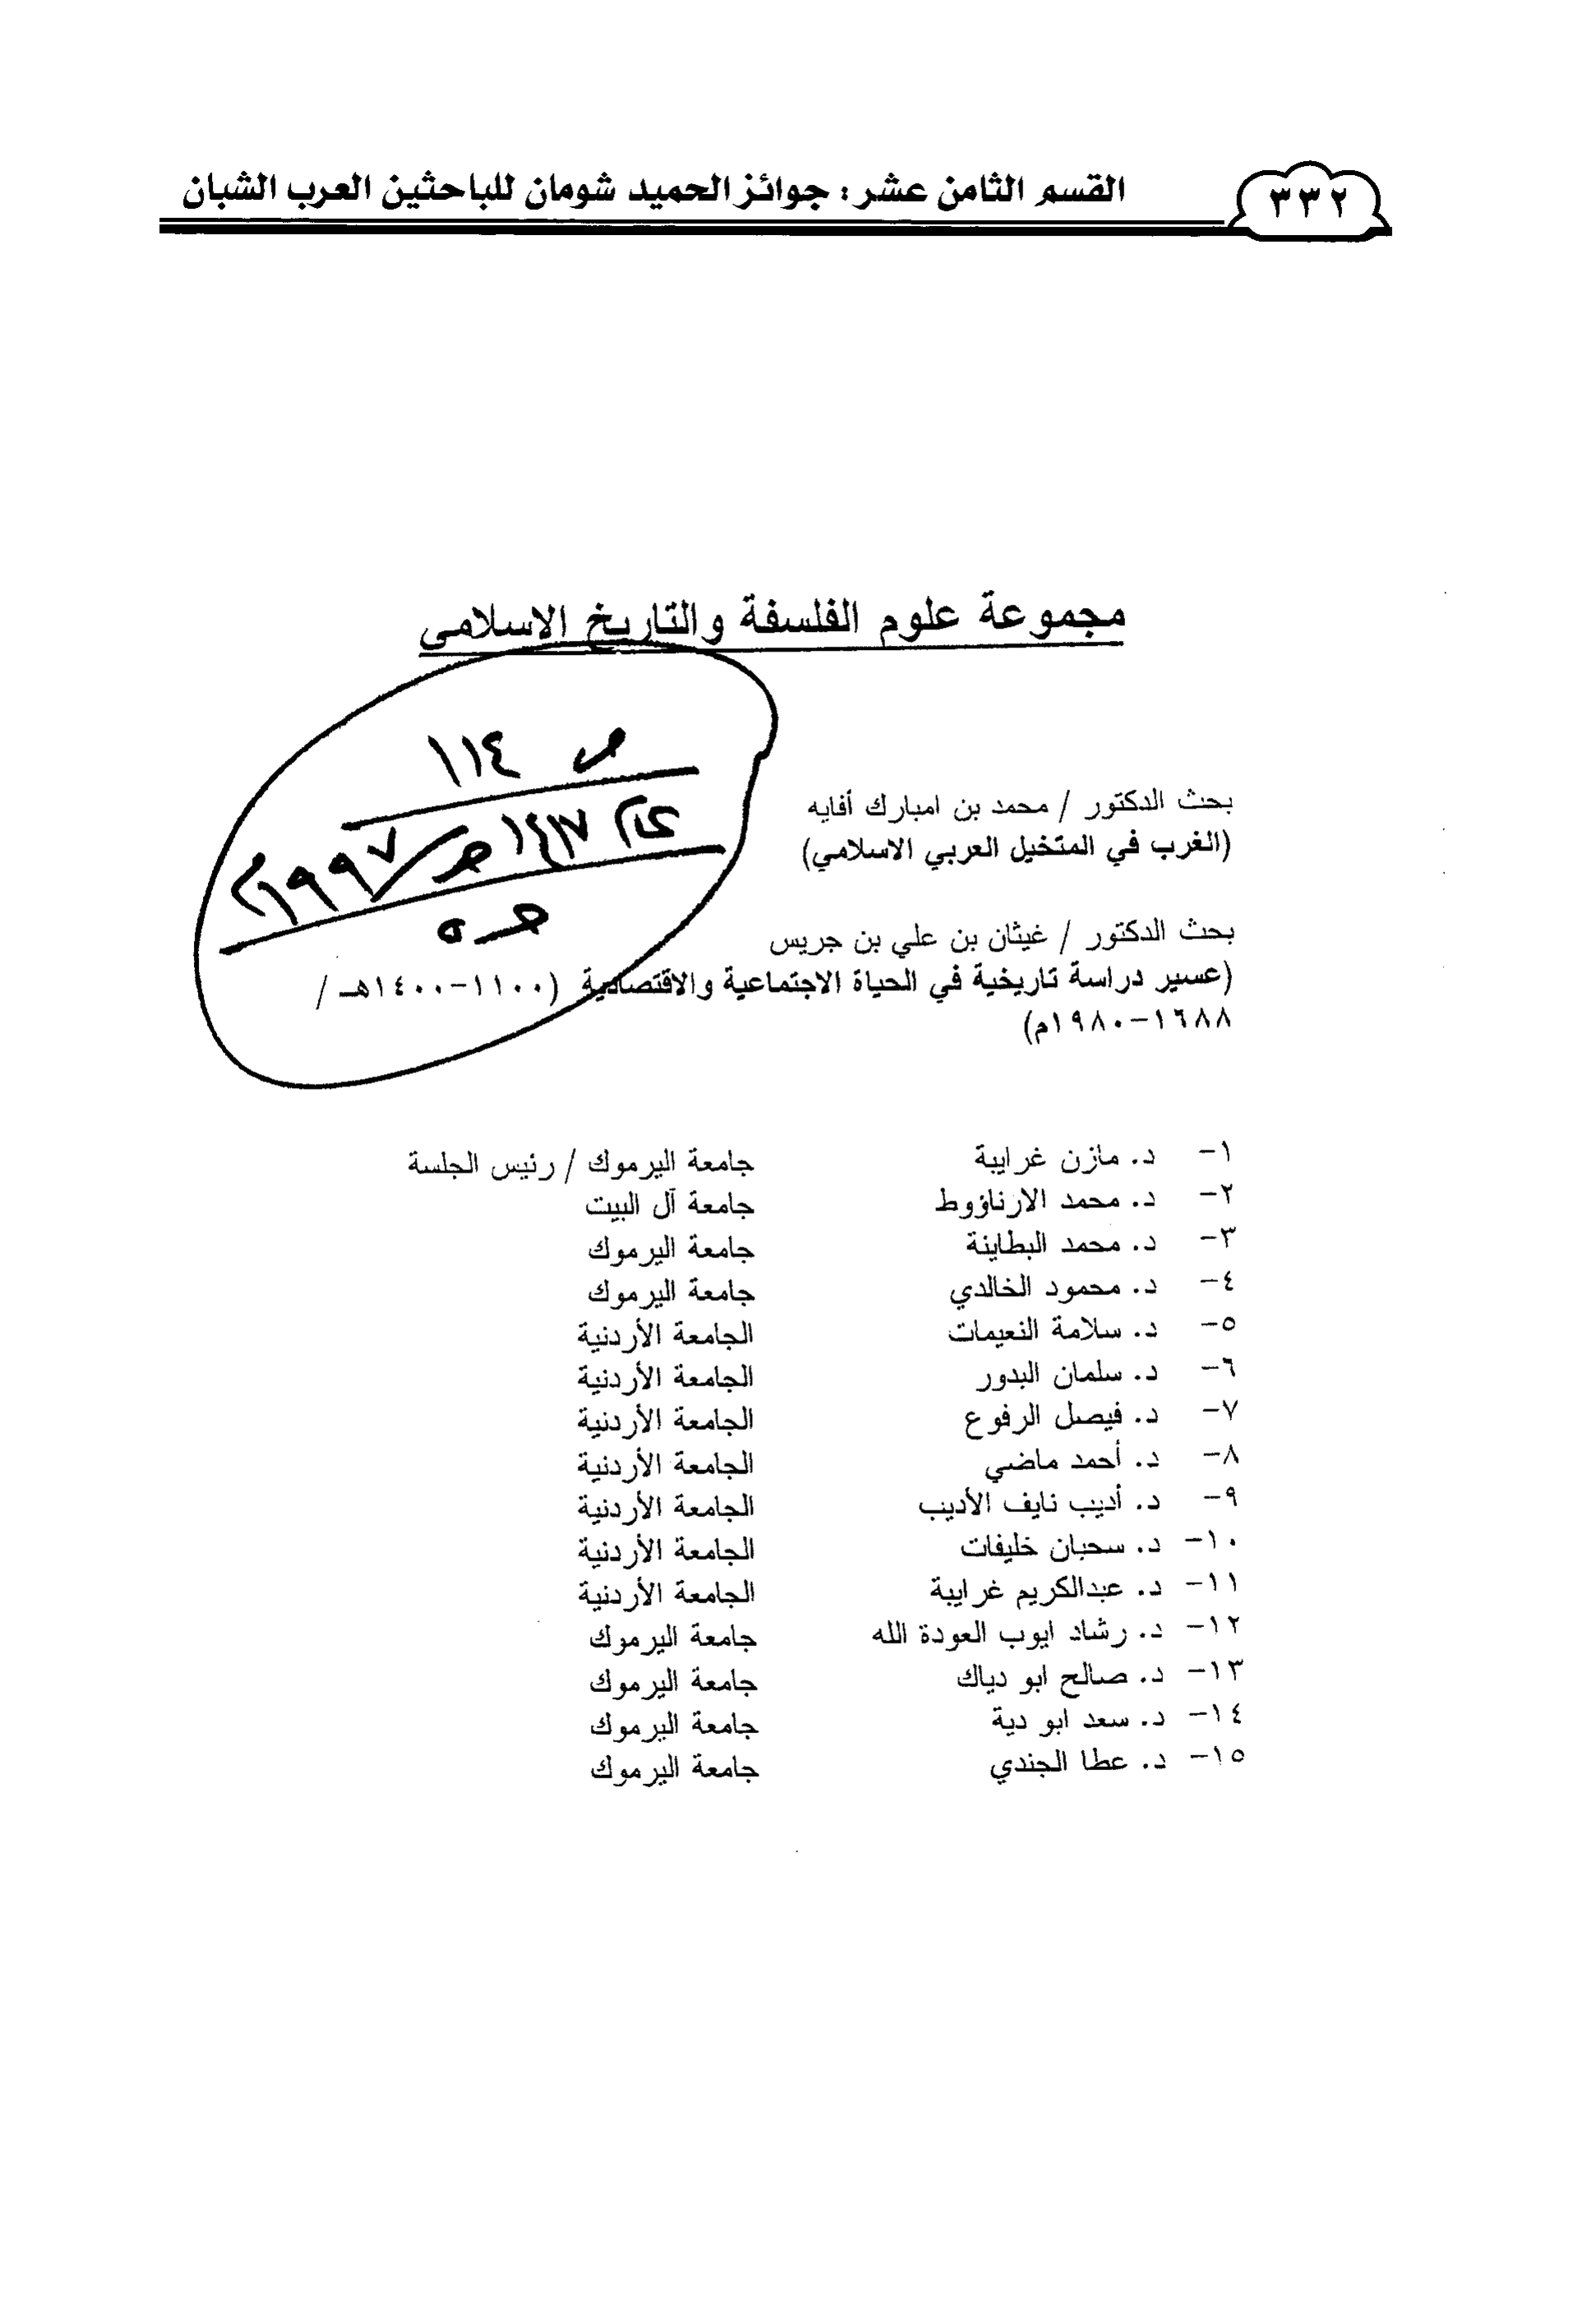 ٣٣٢
القسم الثامن عشر: جوائز الحميد شومان للباحثين العرب الشبان
مجموعة علوم الفلسفة والتاريخ الاسلامي
ص ١١٤
١٤١٧هـ/١٩٩٧م
بحث الدكتور / محمد بن امبارك أفايه
(الغرب في المتخيل العربي الاسلامي)
بحث الدكتور / غيثان بن علي بن جريس
(عسير دراسة تاريخية في الحياة الاجتماعية والاقتصادية (١١٠٠-١٤٠٠هـ /
١٦٨٨-١٩٨٠م)
١- د. مازن غرايبة جامعة اليرموك / رئيس الجلسة
٢- د. محمد الارناؤوط جامعة آل البيت
٣- د. محمد البطاينة جامعة اليرموك
٤- د. محمود الخالدي جامعة اليرموك
٥- د. سلامة النعيمات الجامعة الأردنية
٦- د. سلمان البدور الجامعة الأردنية
٧- د. فيصل الرفوع الجامعة الأردنية
٨- د. أحمد ماضي الجامعة الأردنية
٩- د. أديب نايف الأديب الجامعة الأردنية
١٠- د. سحبان خليفات الجامعة الأردنية
١١- د. عبدالكريم غرايبة الجامعة الأردنية
١٢- د. رشاد ايوب العودة الله جامعة اليرموك
١٣- د. صالح ابو دياك جامعة اليرموك
١٤- د. سعد ابو دية جامعة اليرموك
١٥- د. عطا الجندي جامعة اليرموك